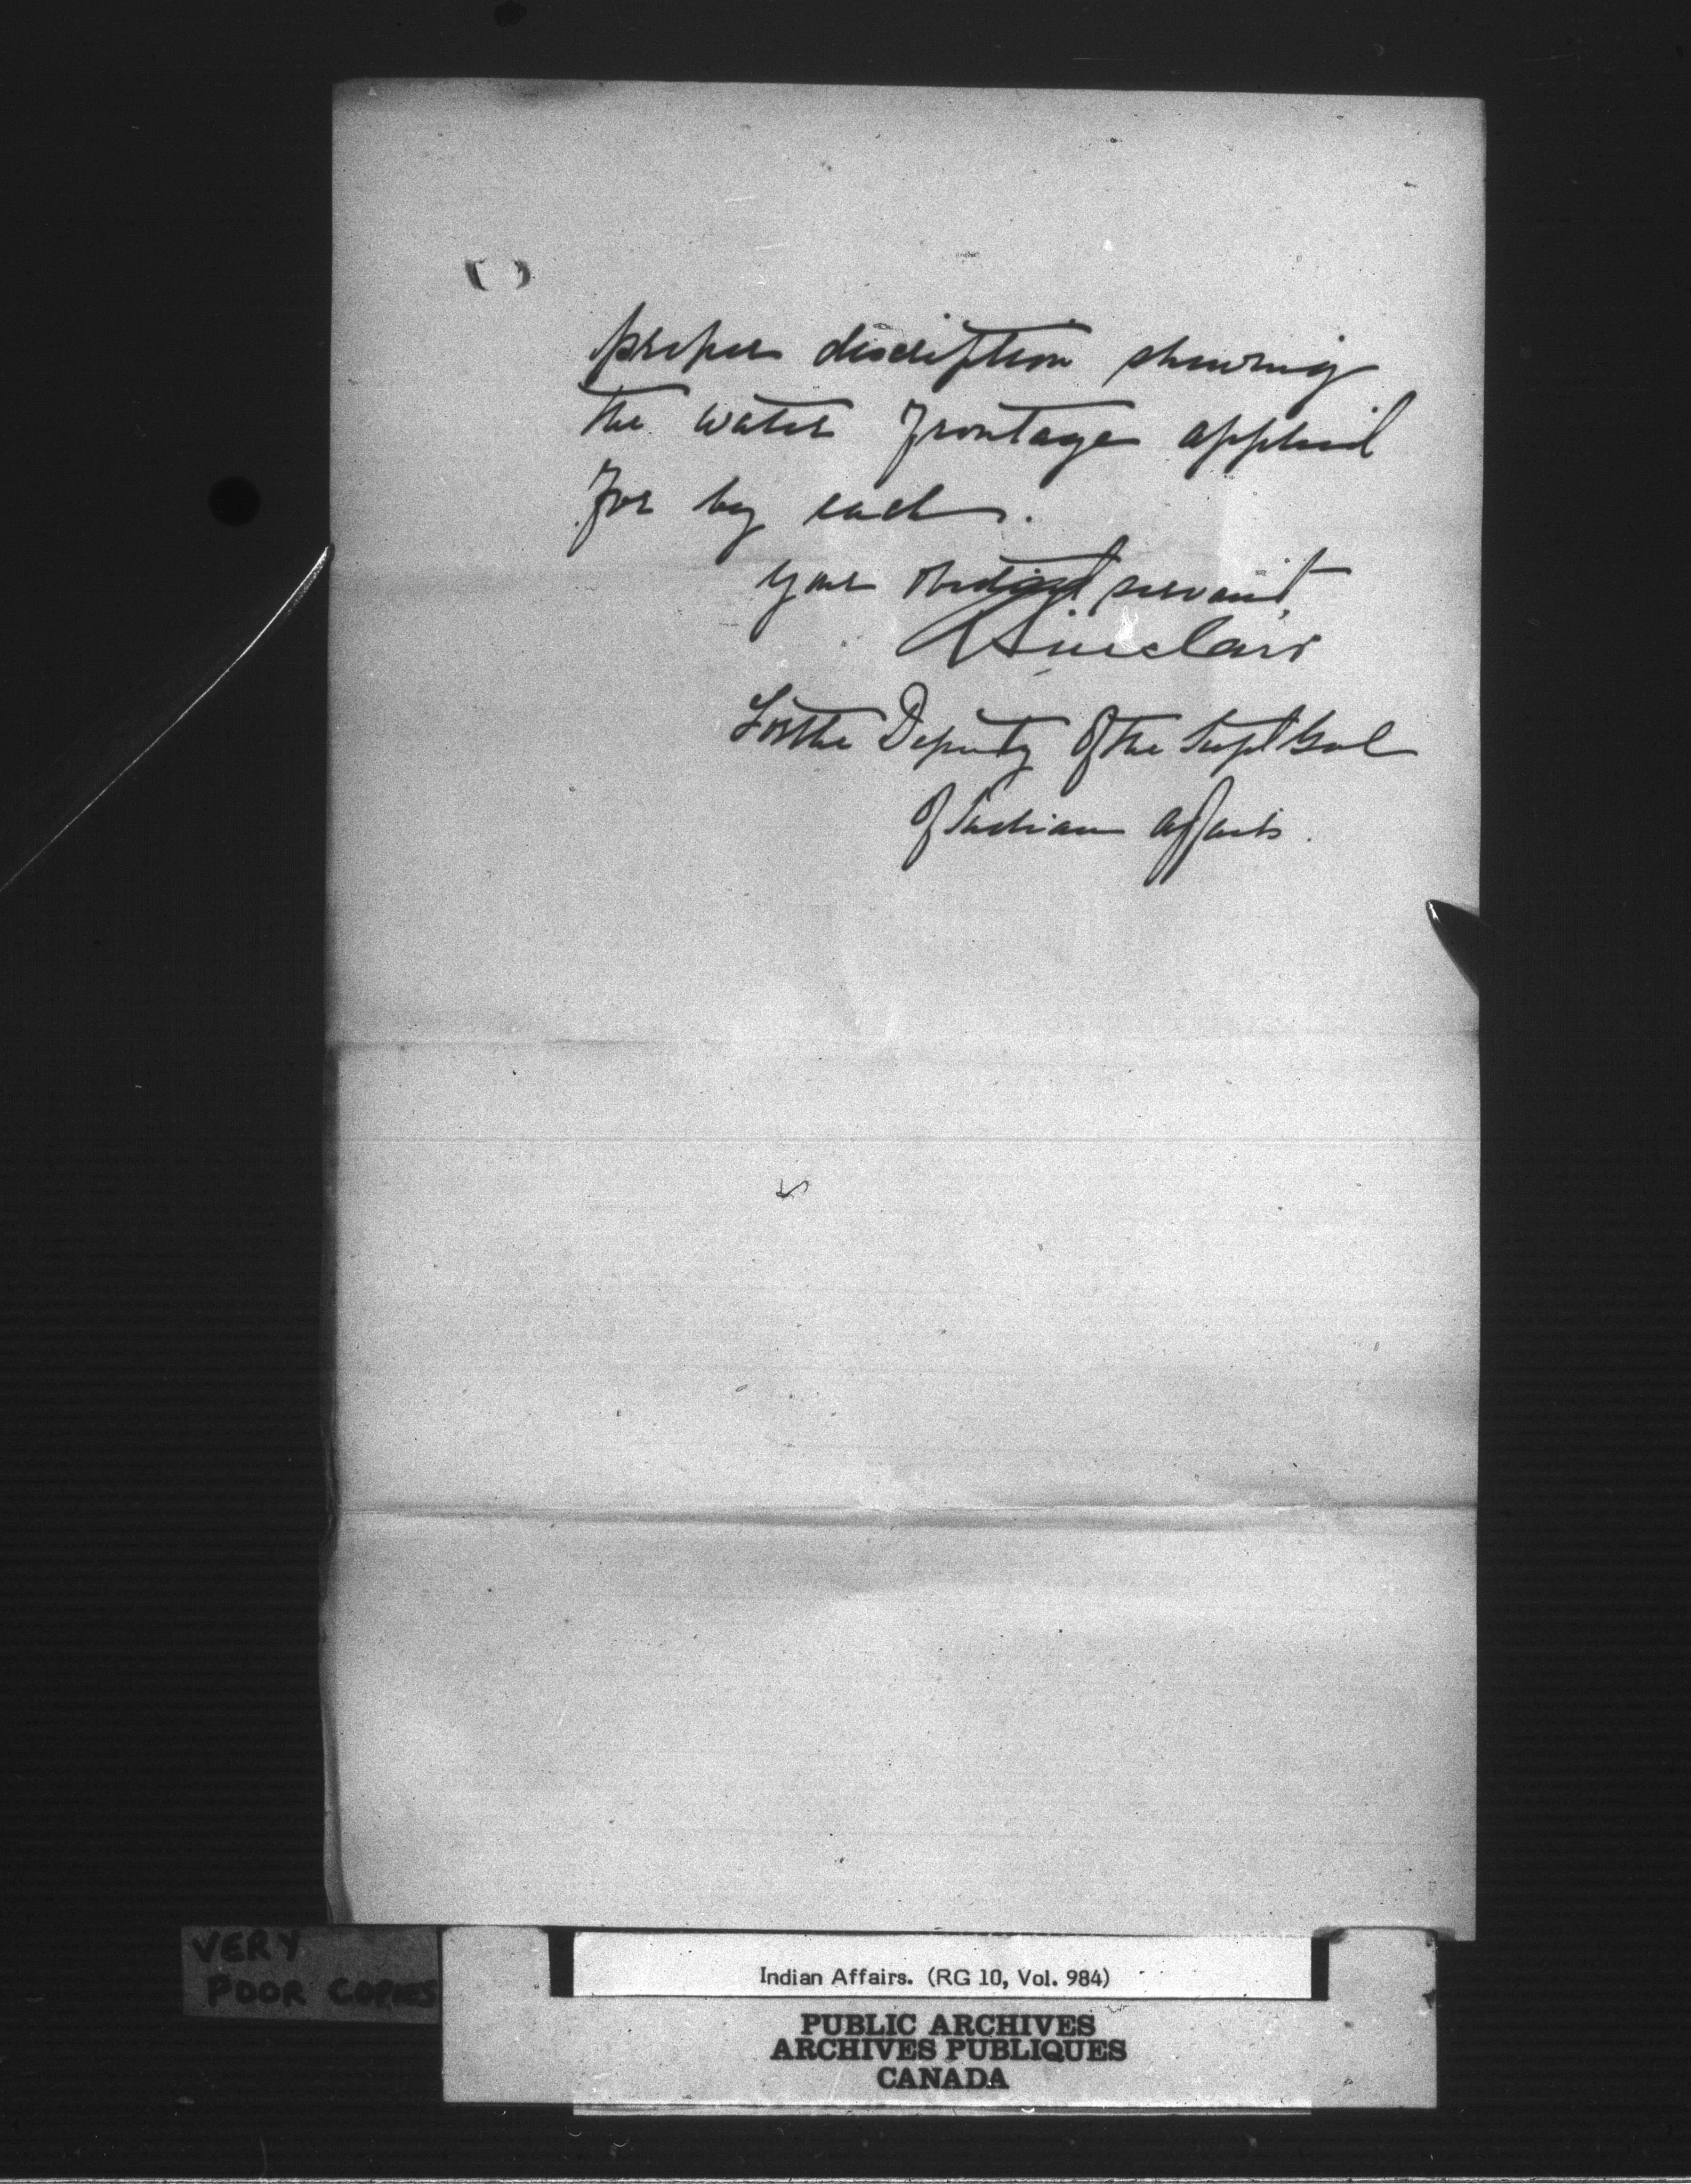 proper description shewing
the water frontage applied
for by each.
your obedient servant,
Sinclair
For the Deputy of the Supt Genl
of Indian Affairs.
VERY
POOR COPIES
Indian Affairs. (RG 10, Vol. 984)
PUBLIC ARCHIVES
ARCHIVES PUBLIQUES
CANADA